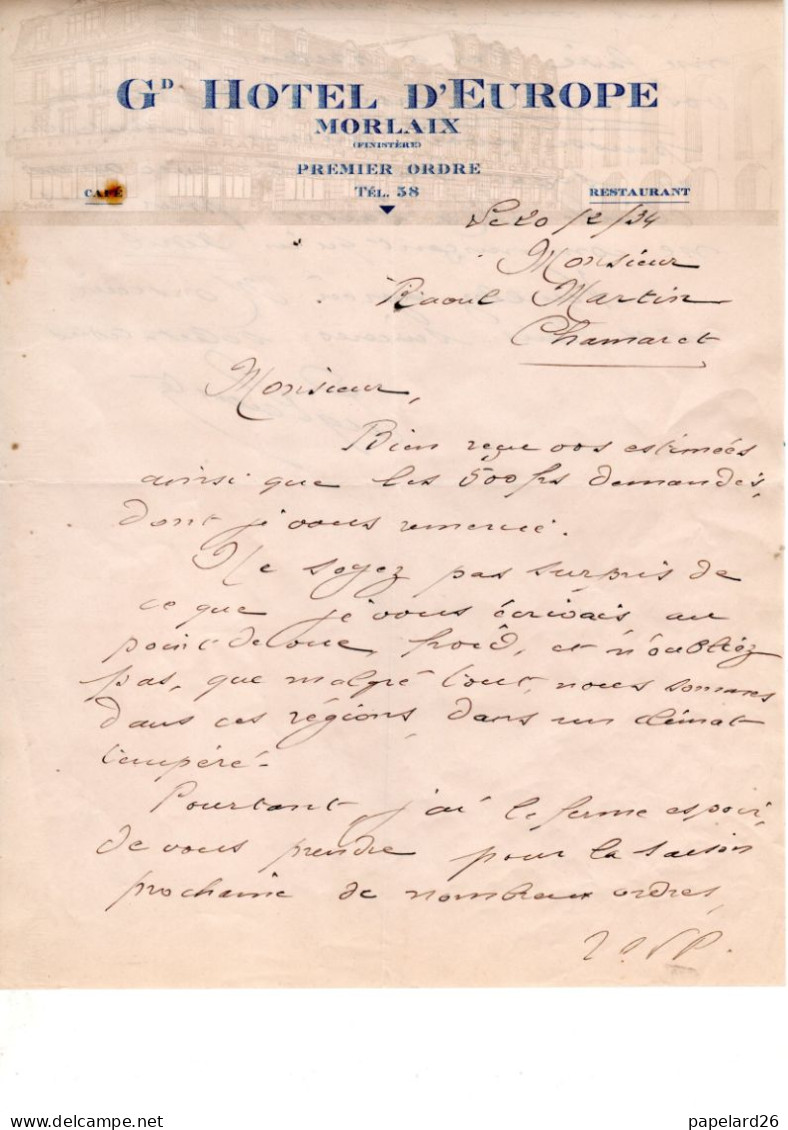 GD HOTEL D'EUROPE
MORLAIX
(FINISTÈRE)
PREMIER ORDRE
CAFÉ
TÉL. 58
RESTAURANT
Le 20/2/34
Monsieur
Raoul Martin
Chamaret
Monsieur,
Bien reçue vos estimées
ainsi que les 500 frs demandés,
dont je vous remercie.
Ne soyez pas surpris de
ce que je vous écrivais au
point de vue froid, et n'oubliez
pas, que malgré tout, nous sommes
dans ces régions, dans un climat
tempéré.
Pourtant, j'ai le ferme espoir,
de vous prendre pour la saison
prochaine de nombreux ordres,
papelard26